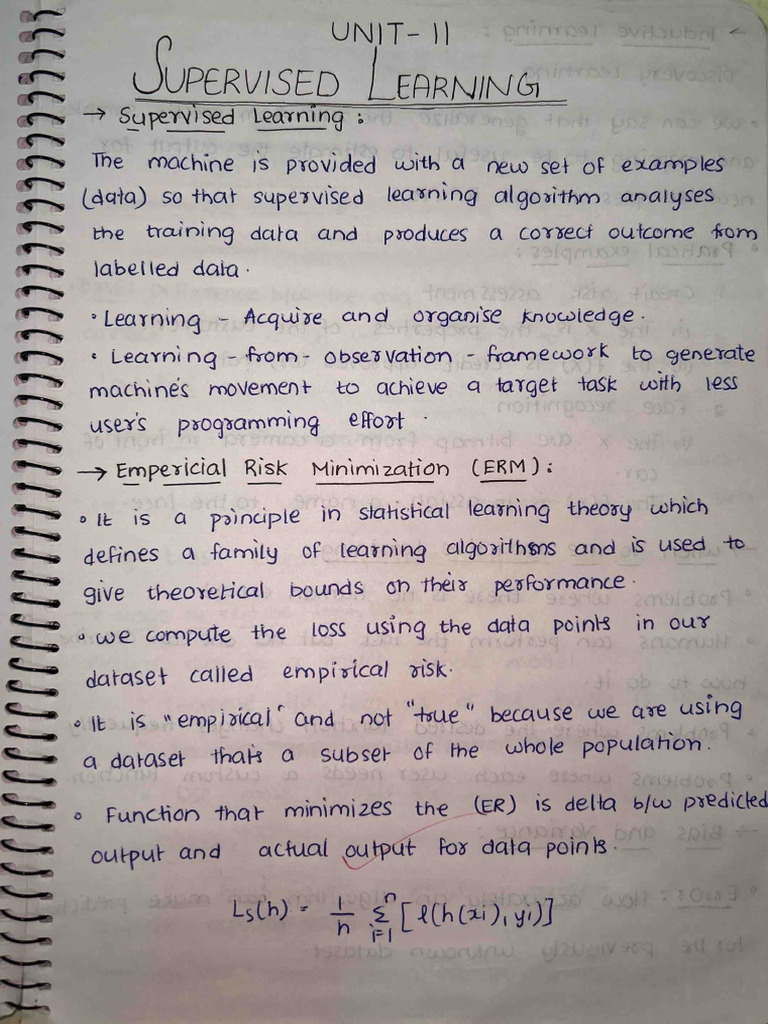 UNIT-II
SUPERVISED LEARNING
→ Supervised Learning :
The machine is provided with a new set of examples
(data) so that supervised learning algorithm analyses
the training data and produces a correct outcome from
labelled data.
• Learning - Acquire and organise knowledge.
• Learning - from - observation - framework to generate
machine's movement to achieve a target task with less
user's programming effort.
→ Empericial Risk Minimization (ERM) :
• It is a principle in statistical learning theory which
defines a family of learning algorithms and is used to
give theoretical bounds on their performance.
• we compute the loss using the data points in our
dataset called empirical risk.
• It is "empirical" and not "true" because we are using
a dataset that's a subset of the whole population.
• Function that minimizes the (ER) is delta b/w predicted
output and actual output for data points.
Ls(h) = 1/n Σ i=1 n [l(h(xi), yi)]